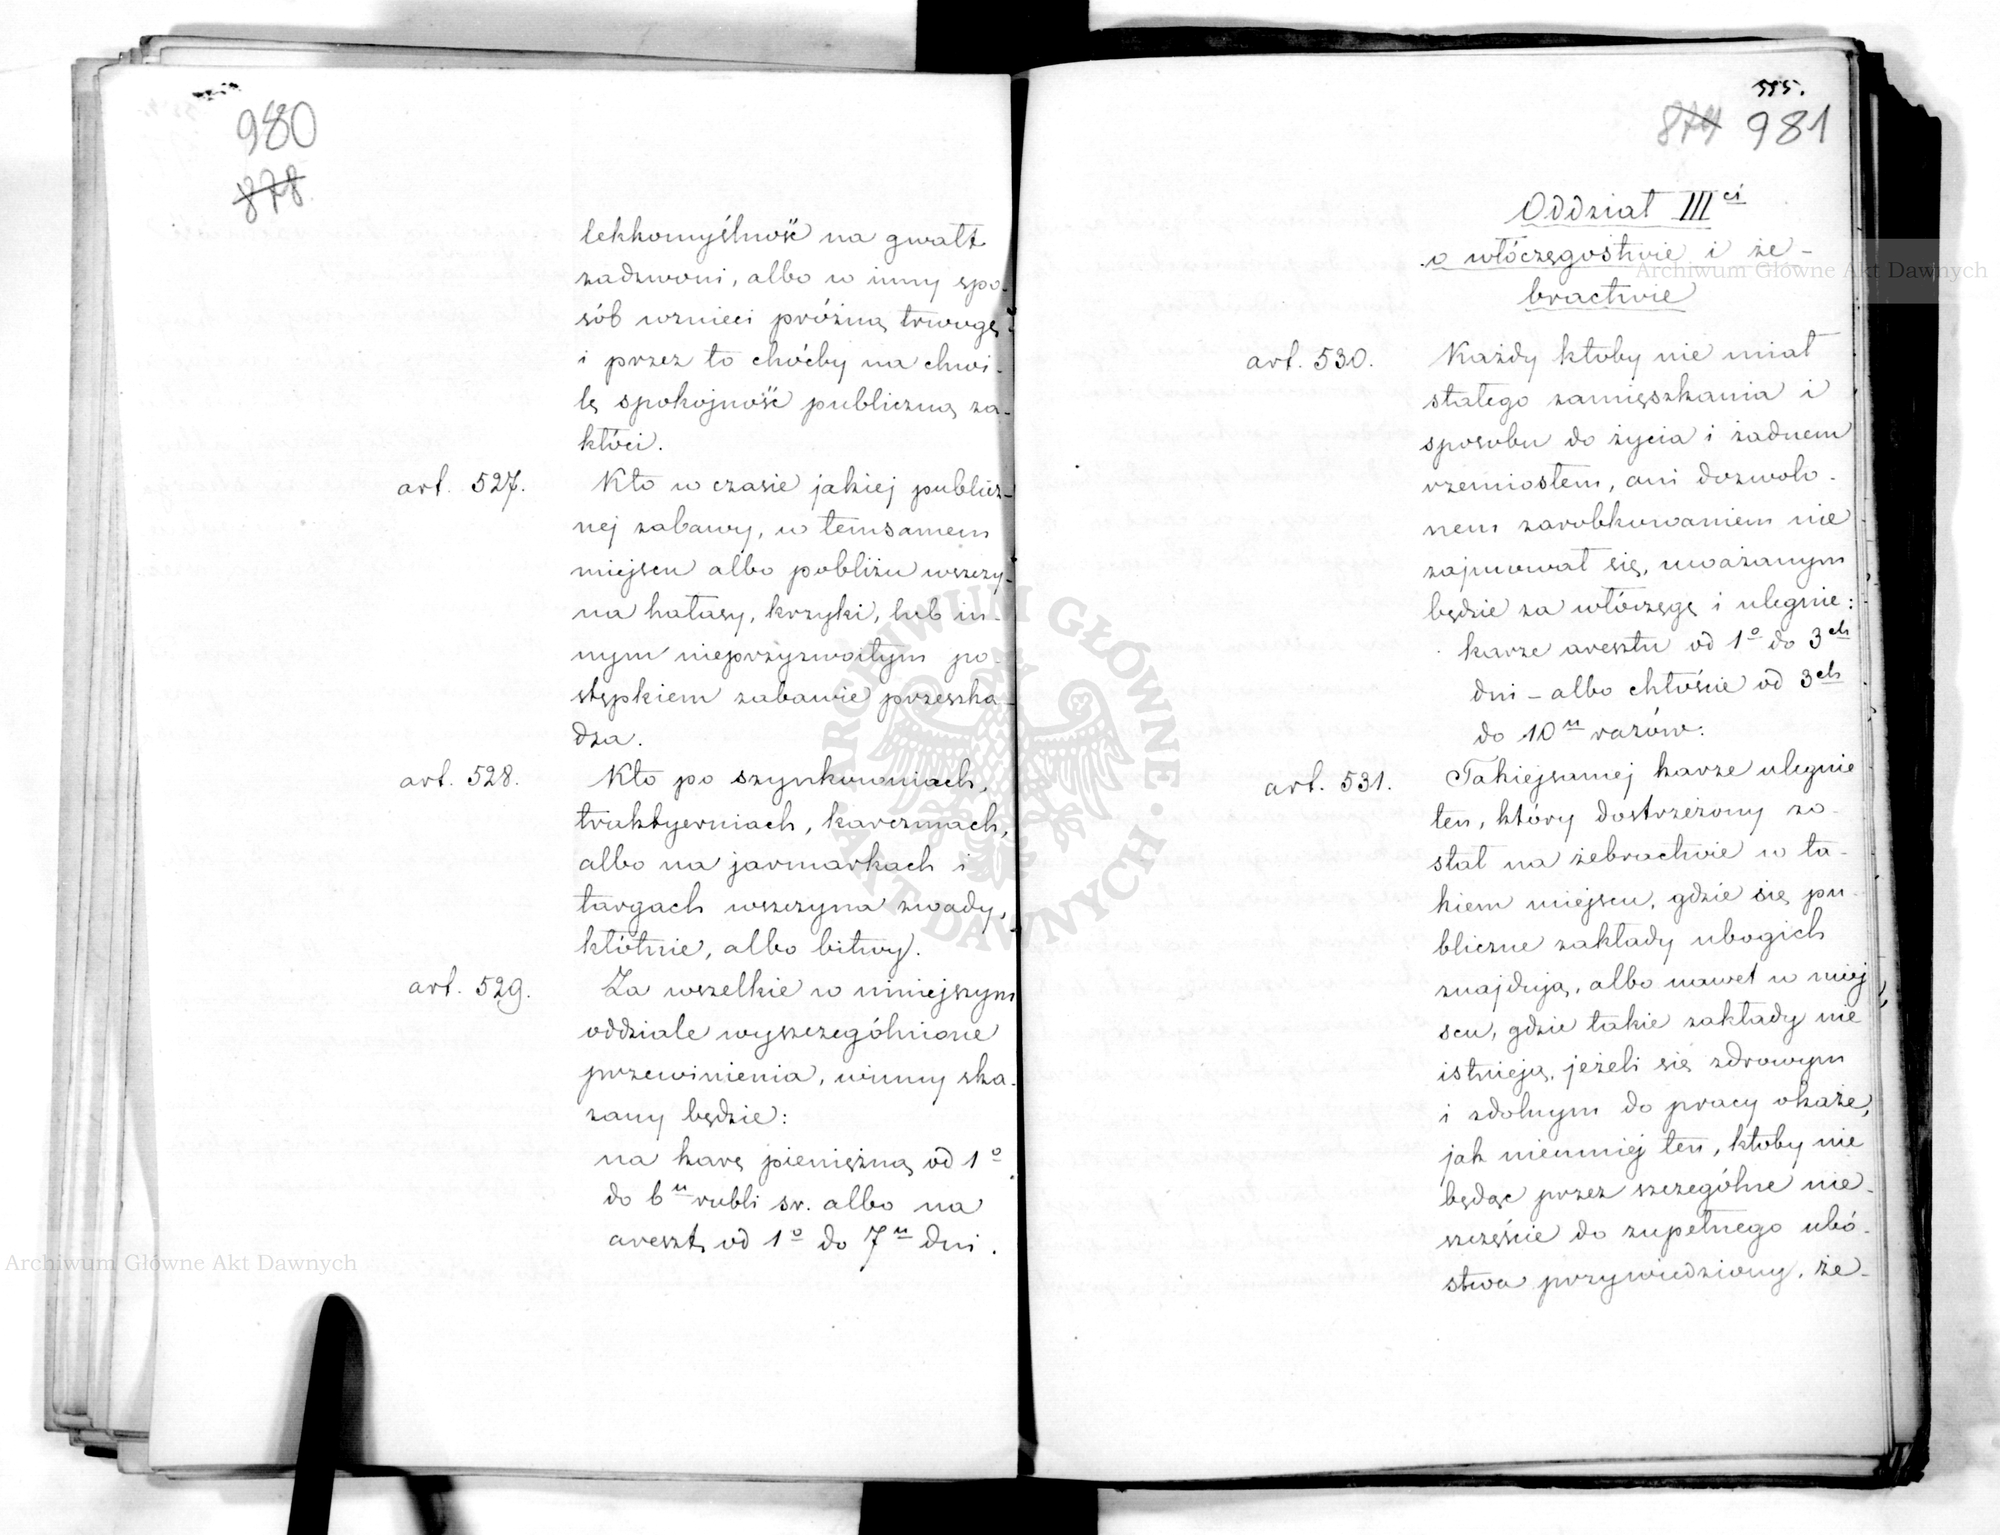 980
878.
lekkomyślność na gwałt
zadzwoni, albo w inny spo-
sób wznieci próżną trwogę
i przez to choćby na chwi-
lę spokojność publiczną za-
kłóci.
art. 527.
Kto w czasie jakiej publicz-
nej zabawy, w temsamem
miejscu albo pobliżu wszczy-
na hałasy, krzyki, lub in-
nym nieprzyzwoitym po-
stępkiem zabawie przeszka-
dza.
art. 528.
Kto po szynkowniach,
traktyerniach, karczmach,
albo na jarmarkach i
targach wszczyna zwady,
kłótnie, albo bitwy.
art. 529.
Za wszelkie w niniejszym
oddziale wyszczególnione
przewinienia, winny ska-
zany będzie:
na karę pieniężną od 1º
do 6u rubli sr. albo na
areszt od 1º do 7u dni.
555.
874 981
Oddział III ci
o włóczęgostwie i że-
bractwie
art. 530.
Każdy ktoby nie miał
stałego zamięszkania i
sposobu do życia i żadnem
rzemiosłem, ani dozwolo-
nem zarobkowaniem nie
zajmował się, uważanym
będzie za włóczęgę i ulegnie:
karze aresztu od 1º do 3ch
dni – albo chłoście od 3ch
do 10u razów.
art. 531.
Takiejsamej karze ulegnie
ten, który dostrzeżony zo-
stał na żebractwie w ta-
kiem miejscu, gdzie się pu-
bliczne zakłady ubogich
znajdują, albo nawet w miej
scu, gdzie takie zakłady nie
istnieją, jeżeli się zdrowym
i zdolnym do pracy okaże,
jak niemniej ten, ktoby nie
będąc przez szczególne nie-
szczęście do zupełnego ubó-
stwa przywiedziony, że-
Archiwum Główne Akt Dawnych
Archiwum Główne Akt Dawnych
ARCHIWUM GŁÓWNE · AKT DAWNYCH ·